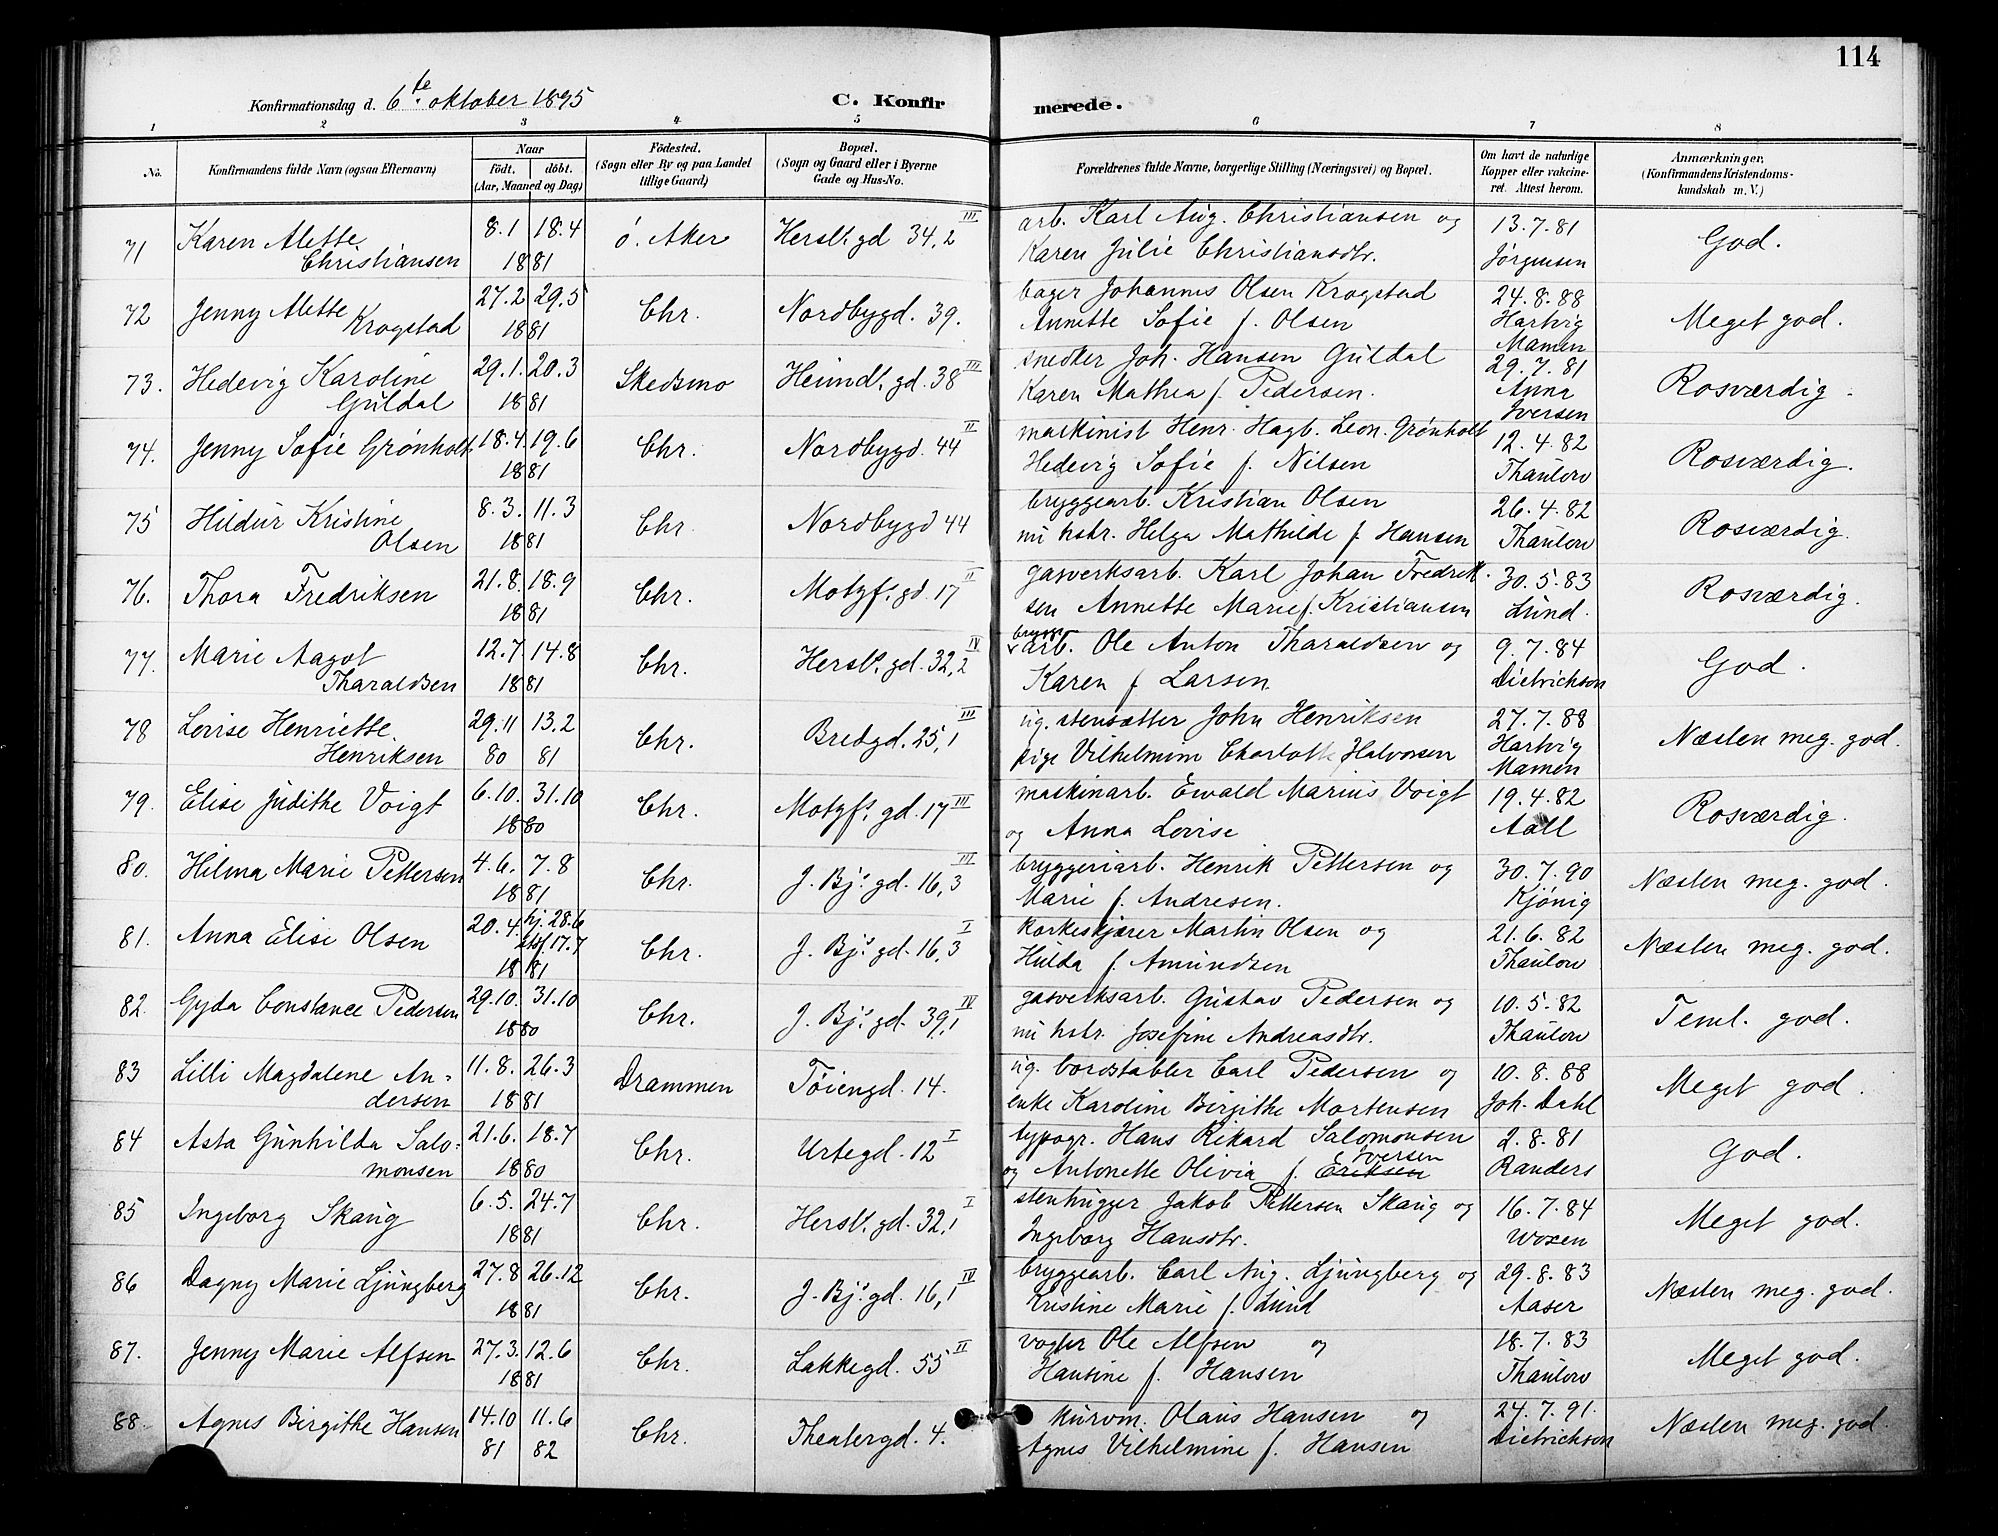 114
Konfirmationsdag d. 6te oktober 1895 C. Konfirmerede.
1 2 3 4 5 6 7 8
No. Konfirmandens fulde Navn (ogsaa Efternavn) Naar født. døbt. (Aar, Maaned og Dag) Fødested. (Sogn eller By og paa Landet tillige Gaard) Bopæl. (Sogn og Gaard eller i Byerne Gade og Hus-No. Forældrenes fulde Navne, borgerlige Stilling (Næringsvei) og Bopæl. Om havt de naturlige Kopper eller vakcineret. Attest herom. Anmærkninger. (Konfirmandens Kristendomskundskab m. V.)
71 Karen Alette 8.1 18.4 ö. Aker Hersl. gd 34,2 III arb. Karl Aug. Christiansen og 13.7.81 God.
Christiansen 1881 Karen Julie Christiansdtr. Jørgensen
72 Jenny Alette 27.2 29.5 Chr. Nordbygd. 39. bager Johannes Olsen Krogstad 24.8.88 Meget god.
Krogstad 1881 Annette Sofie f. Olsen Hartvig Mamen
73. Hedevig Karoline 29.1. 20.3 Skedsmo Heimd. gd. 38 III snedker Joh. Hansen Guldal 29.7.81 Rosværdig.
Guldal 1881 Karen Mathea f. Pedersen. Anna Iversen
74. Jenny Sofie Grønholt 18.4. 19.6 Chr. Nordbygd 44 II maskinist Henr. Hagb. Leon. Grønholt 12.4.82 Rosværdig.
1881 Hedevig Sofie f. Nilsen Thaulow
75 Hildur Kristine 8.3. 11.3 Chr. Nordbygd 44 bryggearb. Kristian Olsen 26.4.82 Rosværdig.
Olsen 1881 nu hstr. Helga Mathilde f. Hansen Thaulow
76. Thora Fredriksen 21.8. 18.9 Chr. Motzf. gd. 17 II gasverksarb. Karl Johan Fredrik- 30.5.83 Rosværdig.
1881 sen Annette Marie f. Kristiansen Lund.
77. Marie Aagot 12.7 14.8 Chr. Hersl. gd. 32,2 IV brygge arb. Ole Anton Tharaldsen og 9.7.84 God.
Tharaldsen 1881 Karen f. Larsen. Dietrichson
78 Lovise Henriette 29.11 13.2 Chr. Bredgd. 25,1 III ug. stensætter John Henriksen 27.7.88 Næsten meg. god.
Henriksen 80 81 pige Vilhelmine Charlotte Halvorsen Hartvig Mamen
79. Elise Judithe Voigt 6.10. 31.10 Chr. Motzf. gd. 17 III maskinarb. Ewald Marius Voigt 19.4.82 Rosværdig.
1880 og Anna Lovise Aall
80. Hilma Marie Pettersen 4.6. 7.8 Chr. J. Bj. gd. 16,3 III bryggeriarb. Henrik Pettersen og 30.7.90 Næsten meg. god.
1881 Marie f. Andresen. Kjønig
81. Anna Elise Olsen 20.4. hj. 28.6 stsf. 17.7 Chr. J. Bj. gd. 16,3 I korkeskjærer Martin Olsen og 21.6.82 Næsten meg. god.
1881 Hulda f. Amundsen Thaulow
82. Gyda Constance Pedersen 29.10. 31.10 Chr. J. Bj. gd. 39,1 IV gasverksarb. Gustav Pedersen og 10.5.82 Teml. god.
1880 nu hstr. Josefine Andreasdtr. Thaulow
83 Lilli Magdalene An- 11.8. 26.3 Drammen Töiengd. 14. ug. bordstabler Carl Pedersen og 10.8.88 Meget god.
dersen 1881 enke Karoline Birgithe Mortensen Joh. Dahl
84 Asta Gunhilda Salo- 21.6. 18.7 Chr. Urtegd. 12 I typogr. Hans Rikard Salomonsen 2.8.81 God.
monsen 1880 og Antonette Olivia f. Eriksen Iversen Randers
85 Ingeborg Skaug 6.5. 24.7 Chr. Hersl. gd. 32,1 I stenhugger Jakob Pettersen Skaug og 16.7.84 Meget god.
1881 Ingeborg Hansdtr. Woxen
86 Dagny Marie Ljungberg 27.8 26.12 Chr. J. Bj. gd. 16,1 IV bryggearb. Carl Aug. Ljungberg og 29.8.83 Næsten meg. god.
1881 Kristine Marie f. Lund Aaser
87. Jenny Marie Alfsen 27.3. 12.6 Chr. Lakkegd. 55 II vogter Ole Alfsen og 18.7.83 Meget god.
1881 Hansine f. Hansen Thaulow
88. Agnes Birgithe Hansen 14.10 11.6 Chr. Theatergd. 4. kurvm. Olaus Hansen og 24.7.91. Næsten meg. god.
81 82 Agnes Vilhelmine f. Hansen Dietrichson